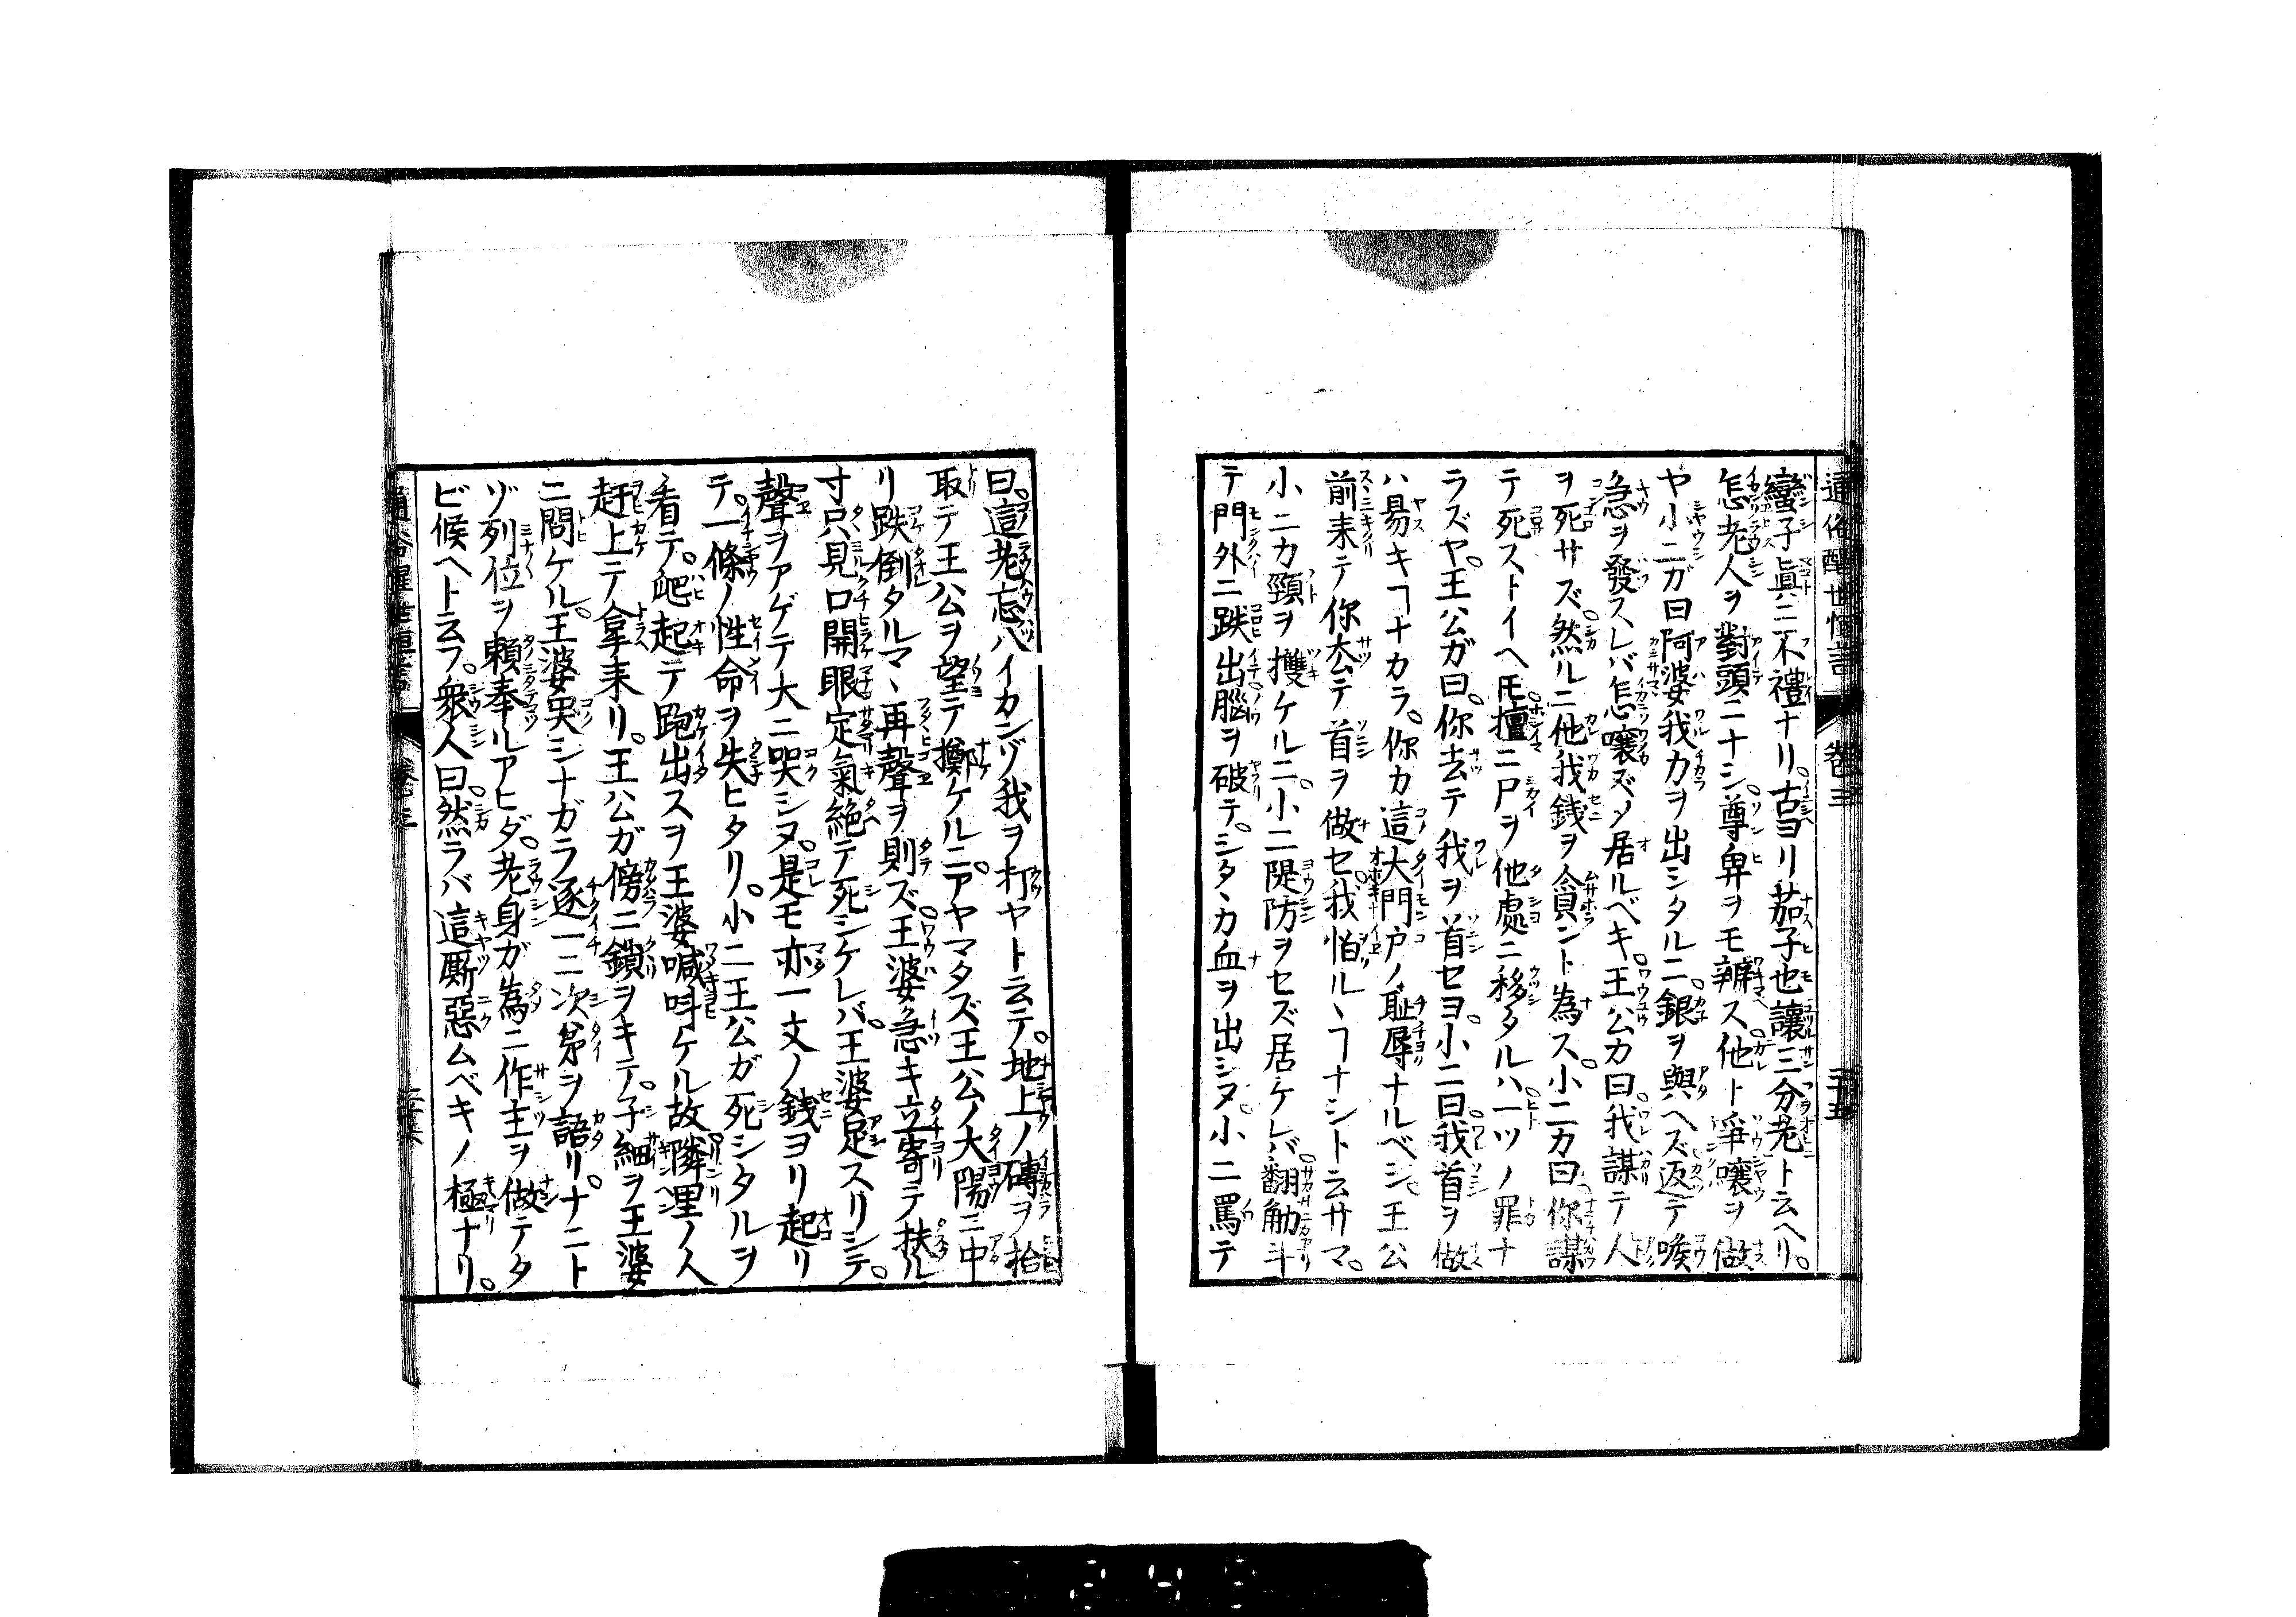 通俗醒世恒言 卷三 二十五
蠻子眞ニ不禮ナリ。古ヨリ茄子也讓三分老ト云ヘリ。
怎老人ヲ對頭ニナシ。尊卑ヲモ辨ス。他ト爭嚷ヲ做
ヤ小二ガ曰阿婆我カヲ出シタルニ。銀ヲ與ヘズ返テ喉
急ヲ發スレバ怎嚷ズノ居ルベキ。王公カ曰我謀テ人
ヲ死サズ。然ルニ他我錢ヲ貪ント為ス。小二カ曰。你謀
テ死ストイヘ𪜈。擅ニ尸ヲ他處ニ移タルハ一ツノ罪ナ
ラズヤ。王公ガ曰。你去テ我ヲ首セヨ。小二曰。我首ヲ做
ハ易キヿナカラ。你カ這大門戸ノ耻辱ナルベシ。王公
前来テ你去テ首ヲ做セ。我怕ルヽヿナシト云サマ。
小二カ頸ヲ㩳ケルニ。小二隄防ヲセズ居ケレバ翻觔斗
テ門外ニ跌出腦ヲ破テ。シタヽカ血ヲ出シヌ。小二罵テ
曰。這老忘八イカンゾ我ヲ打ヤト云テ。地上ノ磚ヲ拾
取テ王公ヲ望テ擲ケルニ。アヤマタズ王公ノ大陽ニ中
リ跌倒タルマヽ再聲ヲ則ズ。王婆急キ立寄テ扶ル
寸只見口開眼定氣絶テ死シケレバ。王婆足スリシテ。
聲ヲアゲテ大ニ哭シヌ。是モ亦一文ノ錢ヨリ起リ
テ。一條ノ性命ヲ失ヒタリ。小二王公ガ死シタルヲ
看テ。爬起テ跑出スヲ王婆喊呌ケル故隣里ノ人
赶上テ拿来リ。王公ガ傍ニ鎖ヲキテ。子細ヲ王婆
ニ問ケル。王婆哭シナガラ逐一二次第ヲ語リ。ナニト
ゾ列位ヲ頼奉ルアヒダ。老身ガ為ニ作主ヲ做テタ
ビ候ヘト云フ。衆人曰。然ラバ這厮惡ムベキノ極ナリ。
通俗醒世恒言 卷三 二十六